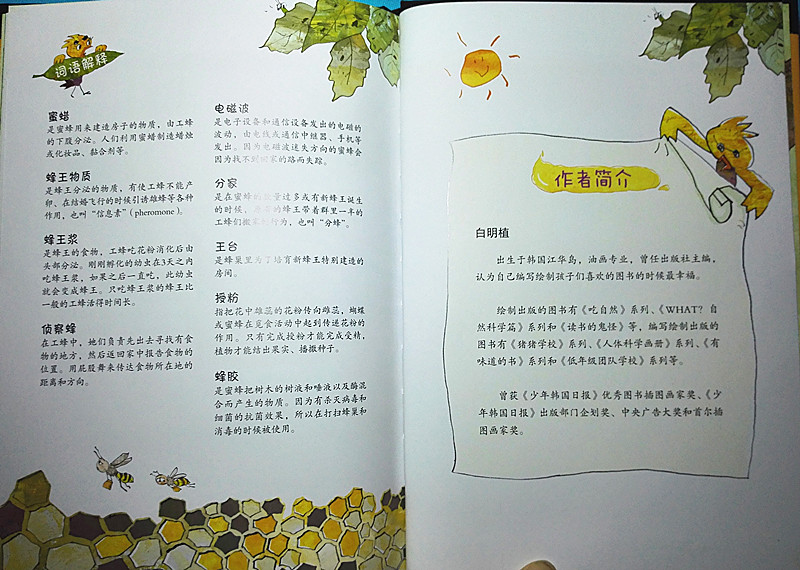 词语解释
蜜蜡
是蜜蜂用来建造房子的物质，由工蜂
的下腹分泌。人们利用蜜蜡制造蜡烛
或化妆品、黏合剂等。
蜂王物质
是蜂王分泌的物质，有使工蜂不能产
卵、在结婚飞行的时候引诱雄蜂等各种
作用，也叫“信息素”（pheromone）。
蜂王浆
是蜂王的食物，工蜂吃花粉消化后由
头部分泌。刚刚孵化的幼虫在3天之内
吃蜂王浆，如果之后一直吃，此幼虫
就会变成蜂王。只吃蜂王浆的蜂王比
一般的工蜂活得时间长。
侦察蜂
在工蜂中，她们负责先出去寻找有食
物的地方，然后返回家中报告食物的
位置。用屁股舞来传达食物所在地的
距离和方向。
电磁波
是电子设备和通信设备发出的电磁的
波动，由电线或通信中继器、手机等
发出。因为电磁波迷失方向的蜜蜂会
因为找不到回家的路而失踪。
分家
是在蜜蜂的数量过多或有新蜂王诞生
的时候，的蜂王带着群里一半的
工蜂们搬家的行为，也叫“分蜂”。
王台
是蜂巢里为了培育新蜂王特别建造的
房间。
授粉
指把花中雄蕊的花粉传向雌蕊，蝴蝶
或蜜蜂在觅食活动中起到传递花粉的
作用。只有完成授粉才能完成受精，
植物才能结出果实、播撒种子。
蜂胶
是蜜蜂把树木的树液和唾液以及酶混
合而产生的物质。因为有杀灭病毒和
细菌的抗菌效果，所以在打扫蜂巢和
消毒的时候被使用。
作者简介
白明植
出生于韩国江华岛，油画专业，曾任出版社主编，
认为自己编写绘制孩子们喜欢的图书的时候最幸福。
绘制出版的图书有《吃自然》系列、《WHAT？自
然科学篇》系列和《读书的鬼怪》等，编写绘制出版的
图书有《猪猪学校》系列、《人体科学画册》系列、《有
味道的书》系列和《低年级团队学校》系列等。
曾获《少年韩国日报》优秀图书插图画家奖、《少
年韩国日报》出版部门企划奖、中央广告大奖和首尔插
图画家奖。